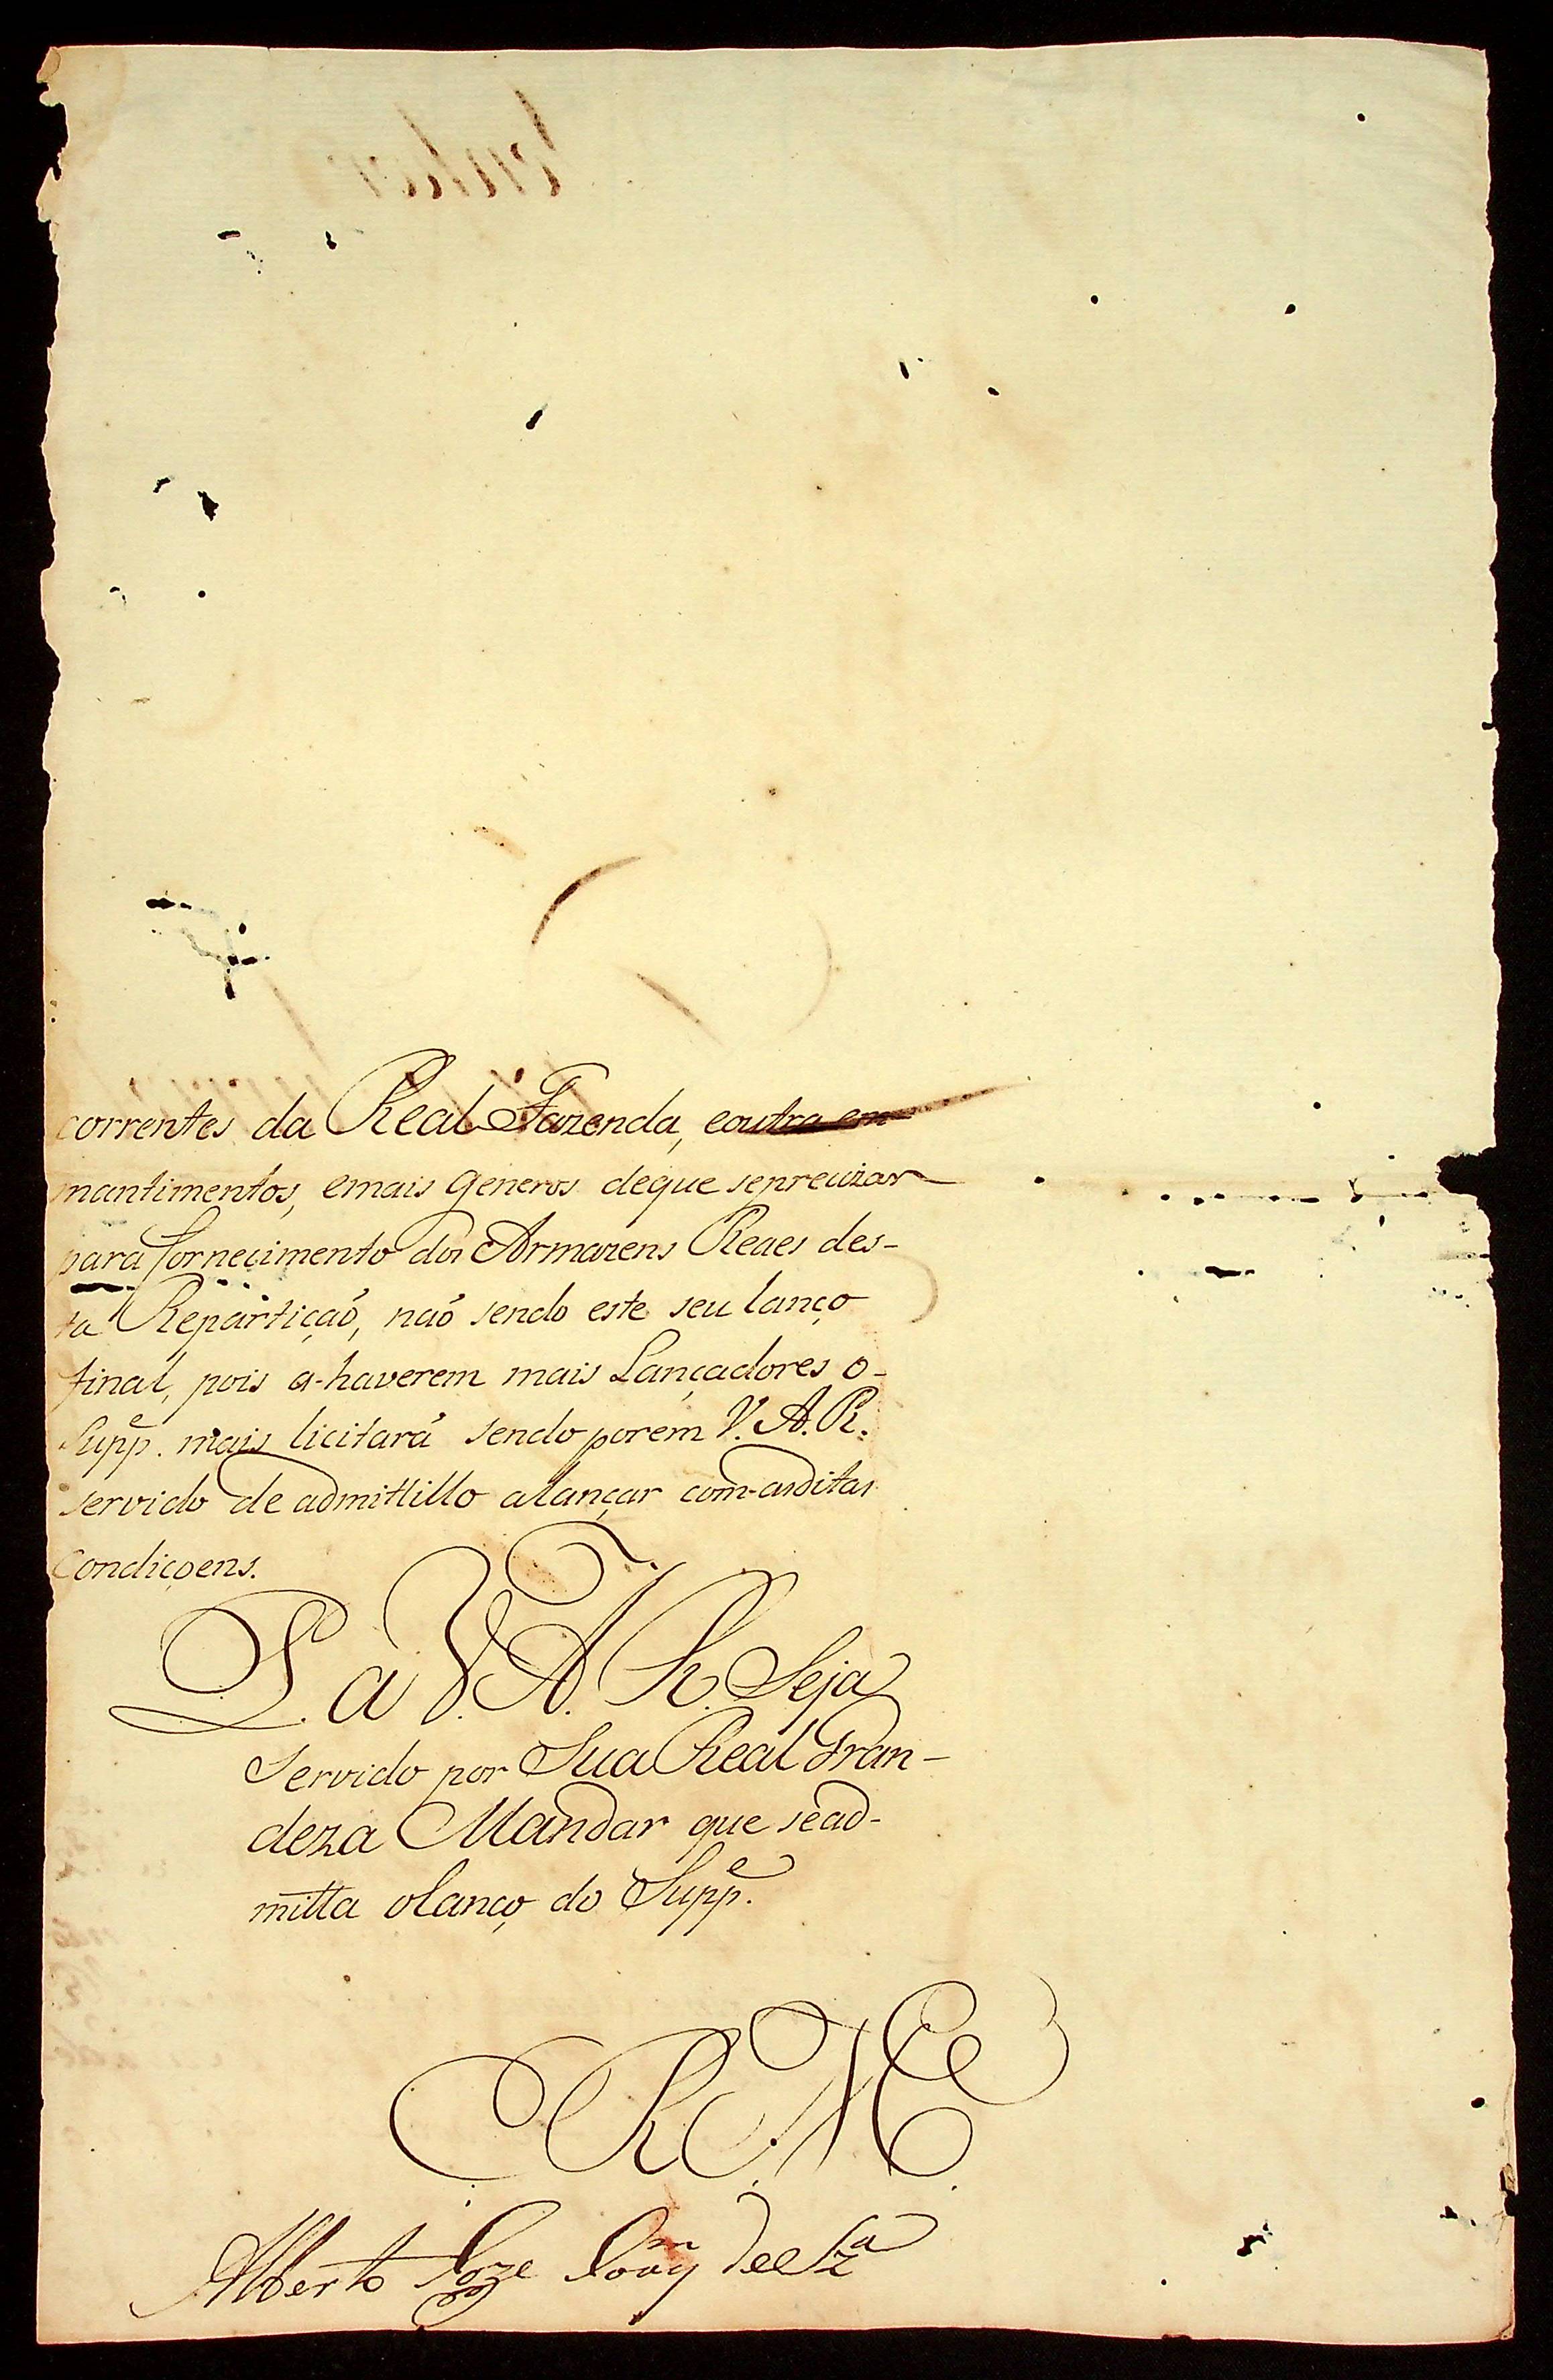 correntes da Real Fazenda, eoutra em
mantimentos, emais generos deque seprecizar
para fornecimento dos Armazens Reaes des-
ta Repartiçaõ, naõ sendo este seu lanço
final, pois a-haverem mais Lançadores o-
Supp.e mais licitará sendo porem V. A. R.
servido de admittillo alançar com-asditas
Condiçoens.
P. a V. A. R. Seja
Servido por Sua Real Gran-
deza Mandar que sead-
mitta olanço do Supp.e
E. R. M.ce
Alberto Joze de Sz.a